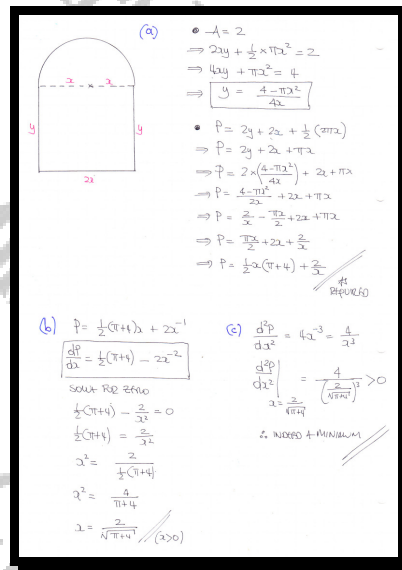 (a)
x x
y y
2x
• A = 2
⇒ 2xy + ½ × πx² = 2
⇒ 4xy + πx² = 4
⇒ y = (4 - πx²)/(4x)
• P = 2y + 2x + ½(2πx)
⇒ P = 2y + 2x + πx
⇒ P = 2 × ((4 - πx²)/(4x)) + 2x + πx
⇒ P = (4 - πx²)/(2x) + 2x + πx
⇒ P = 2/x - πx/2 + 2x + πx
⇒ P = πx/2 + 2x + 2/x
⇒ P = ½x(π+4) + 2/x
AS REQUIRED
(b) P = ½(π+4)x + 2x⁻¹
dP/dx = ½(π+4) - 2x⁻²
SOLVE FOR ZERO
½(π+4) - 2/x² = 0
½(π+4) = 2/x²
x² = 2/(½(π+4))
x² = 4/(π+4)
x = 2/√(π+4) (x>0)
(c) d²P/dx² = 4x⁻³ = 4/x³
d²P/dx² | x = 2/√(π+4) = 4/(2/√(π+4))³ > 0
∴ INDEED A MINIMUM